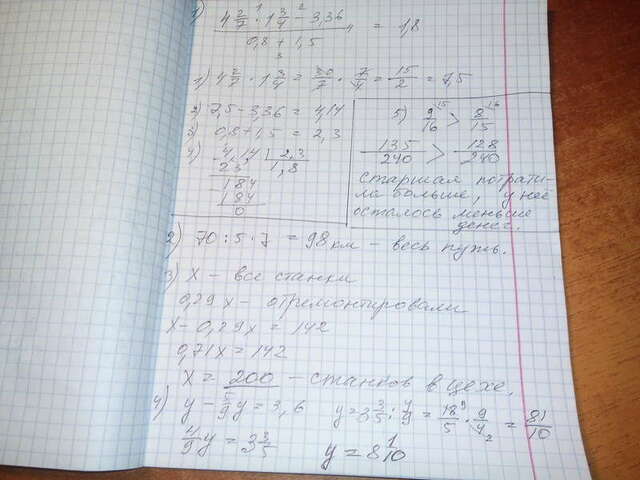 1) (4 2/7 · 1 3/4 - 3,36) / (0,8 + 1,5) = 1,8
1) 4 2/7 · 1 3/4 = 30/7 · 7/4 = 15/2 = 7,5
2) 7,5 - 3,36 = 4,14
3) 0,8 + 1,5 = 2,3
4) 4,14 | 2,3
23 | 1,8
184
184
0
5) 9/16 > 8/15
135/240 > 128/240
старшая потрати-
ла больше, у неё
осталось меньше
денег.
2) 70 : 5 · 7 = 98 км - весь путь.
3) X - все станки
0,29x - отремонтировали
X - 0,29x = 142
0,71x = 142
X = 200 - станков в цехе.
4) y - 5/9 y = 3,6
4/9 y = 3 3/5
y = 3 3/5 : 4/9 = 18/5 · 9/4 = 81/10
y = 8 1/10